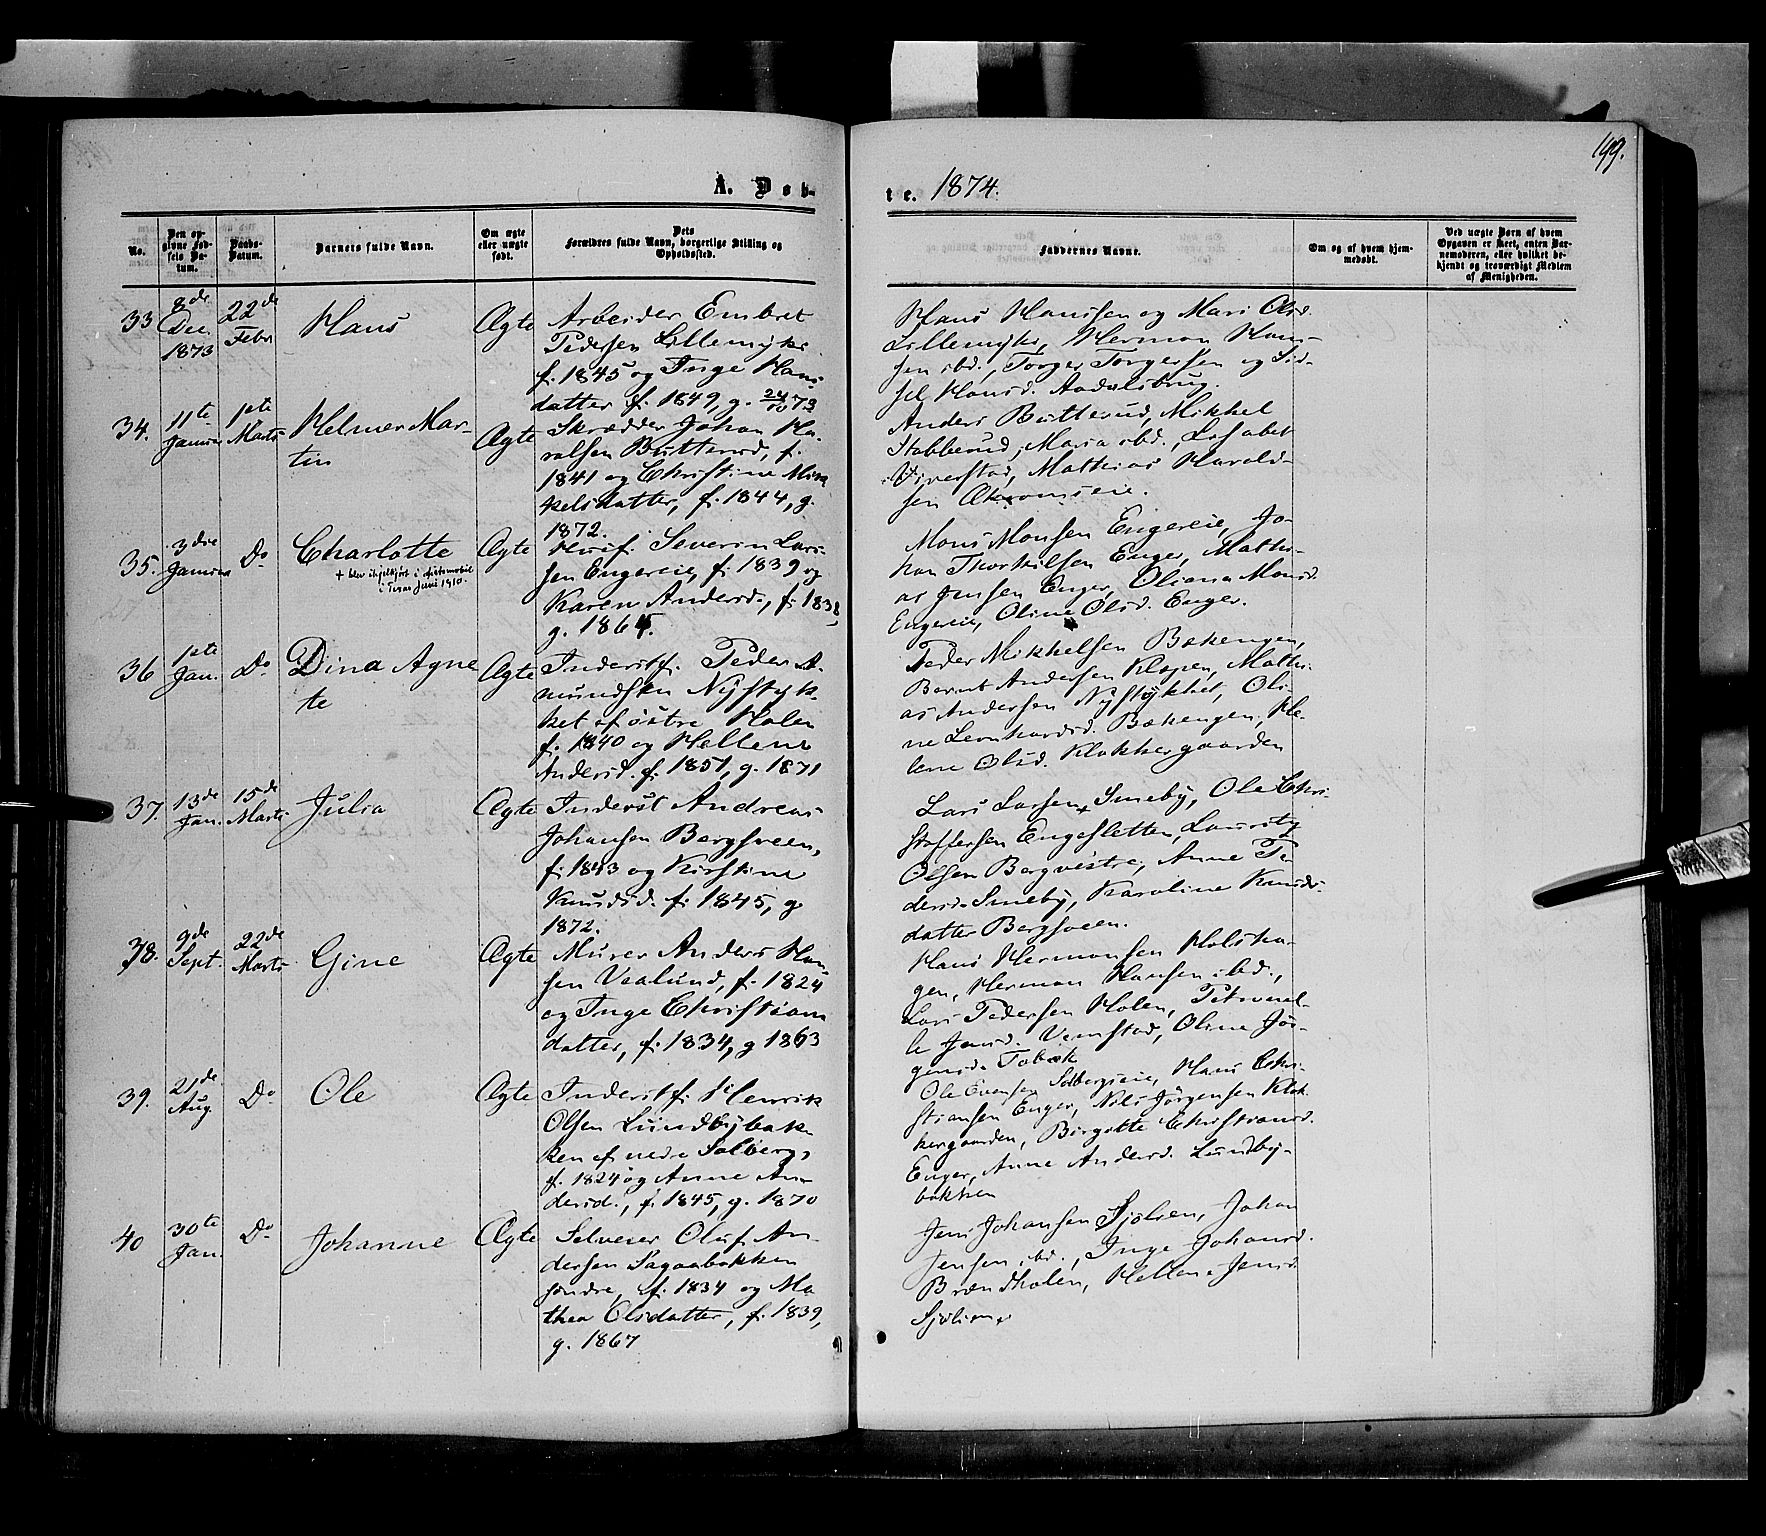 199.
A. Døb-
te. 1874.
No.
Den op-
givne Fød-
sels Da-
tum.
Daabs-
Datum.
Barnets fulde Navn.
Om ægte
eller uægte
født.
Dets
Forældres fulde Navn, borgerlige Stilling og
Opholdssted.
Faddernes Navne.
Om og af hvem hjem-
medøbt.
Ved uægte Børn af hvem
Opgaven er skeet, enten Bar-
nemoderen, eller hvilket be-
kjendt og troværdigt Medlem
af Menigheden.
33
8de
Dec.
1873
22de
Febr
Hans
Ægte
Arbeider Embret
Pedersen Lillemyhr
f. 1845 og Inge Hans
datter f. 1849, g. 24/10 73
Hans Hanssen og Mari Olsd.
Lillemyhr, Herman Han-
sen ibd., Torger Torgersen og Sid-
sel Hansd. Aadalsbrug.
34.
11te
Januar
1ste
Marts
Helmer Mar-
tin
Ægte
Skrædder Johan Ha-
ralsen Butterud, f.
1841 og Christine Mik
kelsdatter, f. 1844, g.
1872.
Anders Butterud, Mikkel
Stabberud, Maria ibd., Lisabet
Viverstad, Mathias Harald-
sen
35.
3die
Januar
Do
Charlotte
+ blev ihjelkjørt i Automobil
i Juni 1910.
Ægte
Huusf. Severin Lars-
sen Engereie, f. 1839 og
Karen Andersd., f. 1838,
g. 1864.
Mons Monsen Engereie, Jo-
han Thorkilsen Enger, Mathi-
as Jensen Enger, Oliana Monsd.
Engereie, Oline Olsd. Enger.
36
1ste
Jan.
Do
Dina Agne
te
Ægte
Inderstf. Peder A-
mundsen Nystyk-
ket af østre Holen
f. 1840 og Hellene
Andersd. f. 1851, g. 1871
Peder Mikkelsen Bakengen,
Bernt Andersen Klæpen, Mathi-
as Andersen Nystykket, Oli-
ne Leonhardsd. Bakengen, He-
lene Olsd. Klokkergaarden
37.
13de
Jan.
15de
Marts
Julia
Ægte
Inderst Andreas
Johansen Bergsveen,
f. 1843 og Kirstine
Knudsd. f. 1845, g.
1872.
Lars Larsen Smeby, Ole Chri-
stoffersen Engesletten, Lauritz
Olsen Bergvestre, Anne Pe-
dersd. Smeby, Karoline Knuds-
datter Bergsveen.
38.
9de
Sept.
22de
Marts
Gine
Ægte
Murer Anders Han-
sen Vealund, f. 1824
og Inge Christians
datter, f. 1834, g 1863
Hans Hermansen Holsha-
gen, Herman Hansen ibd.,
Lars Pedersen Holen, Petronel-
le Jensd. Vemstad, Oline Jør-
gensd.
39.
21de
Aug.
Do
Ole
Ægte
Inderstf. Henrik
Olsen Lundbybak-
ken af nedre Solberg,
f. 1824 og Anne An-
dersd., f. 1845, g. 1870
Ole Evensen Solbergseie, Hans Chri-
stiansen Enger, Nils Jørgensen Klok-
kergaarden, Birgitte Christiansd.
Enger, Anne Andersd. Lundby-
bakken
40
30te
Jan.
Do
Johanne
Ægte
Selveier Oluf An-
dersen Sagaabakken
søndre, f. 1834 og Ma
thea Olsdatter, f. 1839,
g. 1867
Jens Johansen Sjølien, Johan
Jensen ibd., Inge Johansd.
Brændholen, Hellene Jensd
Sjølien.